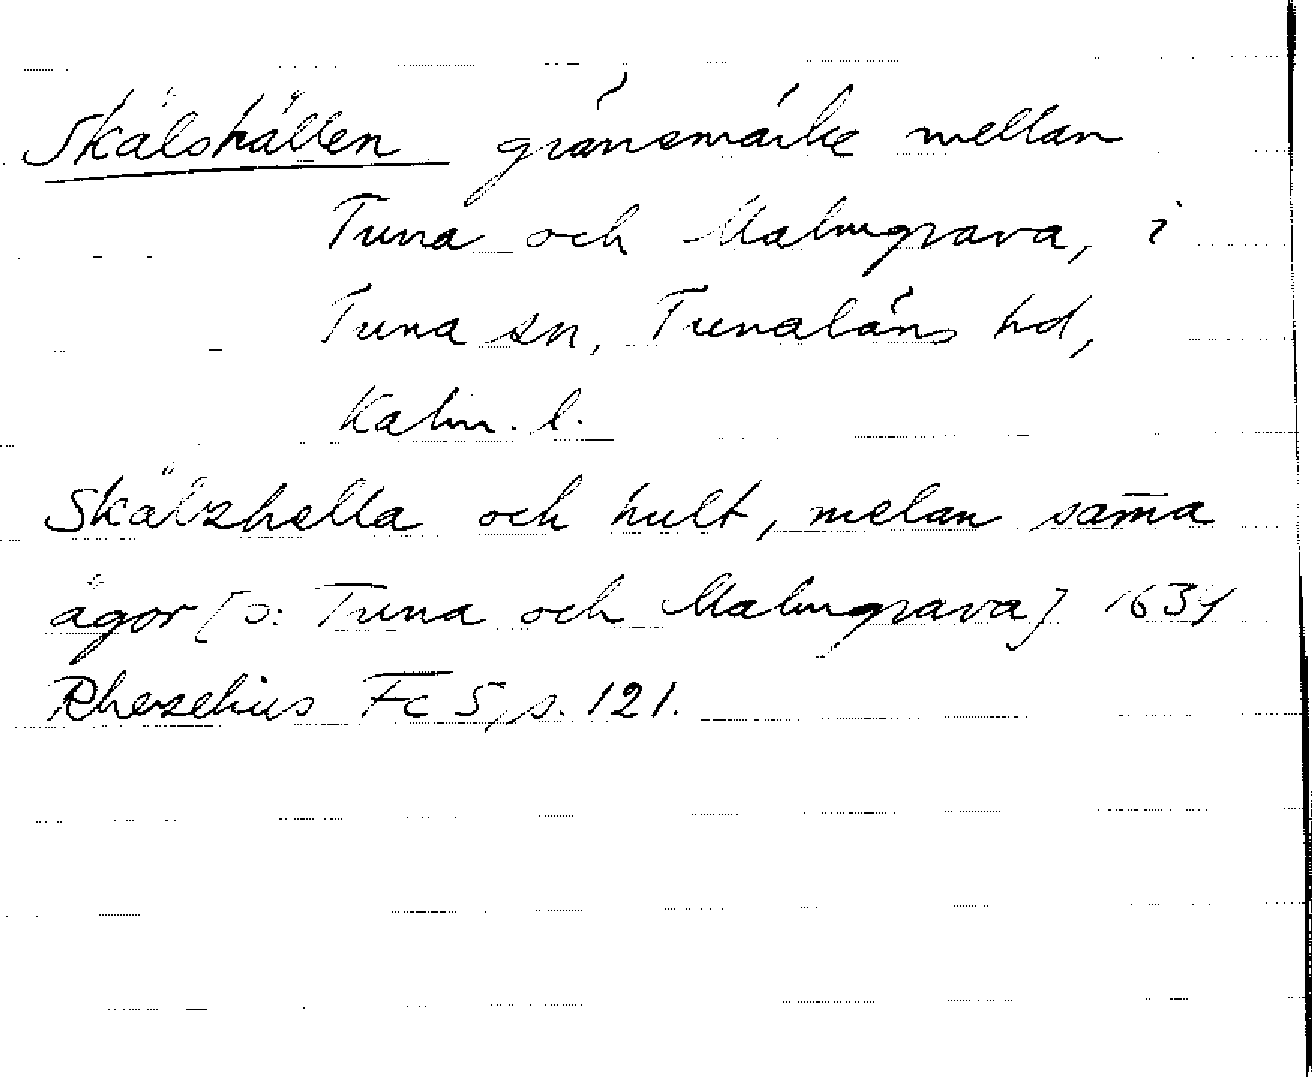 Skälshällen gränsmärke mellan
Tuna och Malmgrava, i
Tuna sn, Tunaläns hd,
Kalm. l.
Skälzhella och hult, melan sam̄a
ägor [ɔ: Tuna och Malmgrava] 1634
Rhezelius Fc 5, s. 121.